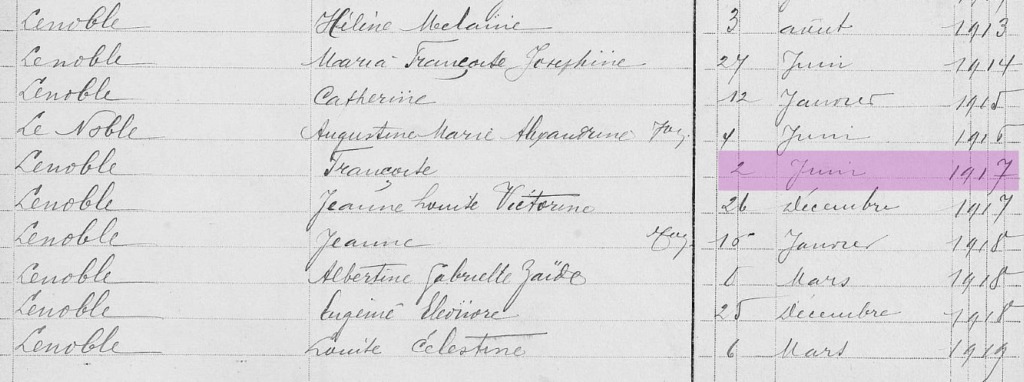 Lenoble Hélène Melanie 3 août 1913
Lenoble Maria Françoise Joséphine 27 Juin 1914
Lenoble Catherine 12 Janvier 1915
Le Noble Augustine Marie Alexandrine 4 Juin 1916
Lenoble Françoise 2 Juin 1917
Lenoble Jeanne Louise Victorine 26 Décembre 1917
Lenoble Jeanne 15 Janvier 1918
Lenoble Albertine Gabrielle Zaïde 8 Mars 1918
Lenoble Eugénie Eléonore 25 Décembre 1918
Lenoble Louise Célestine 6 Mars 1919